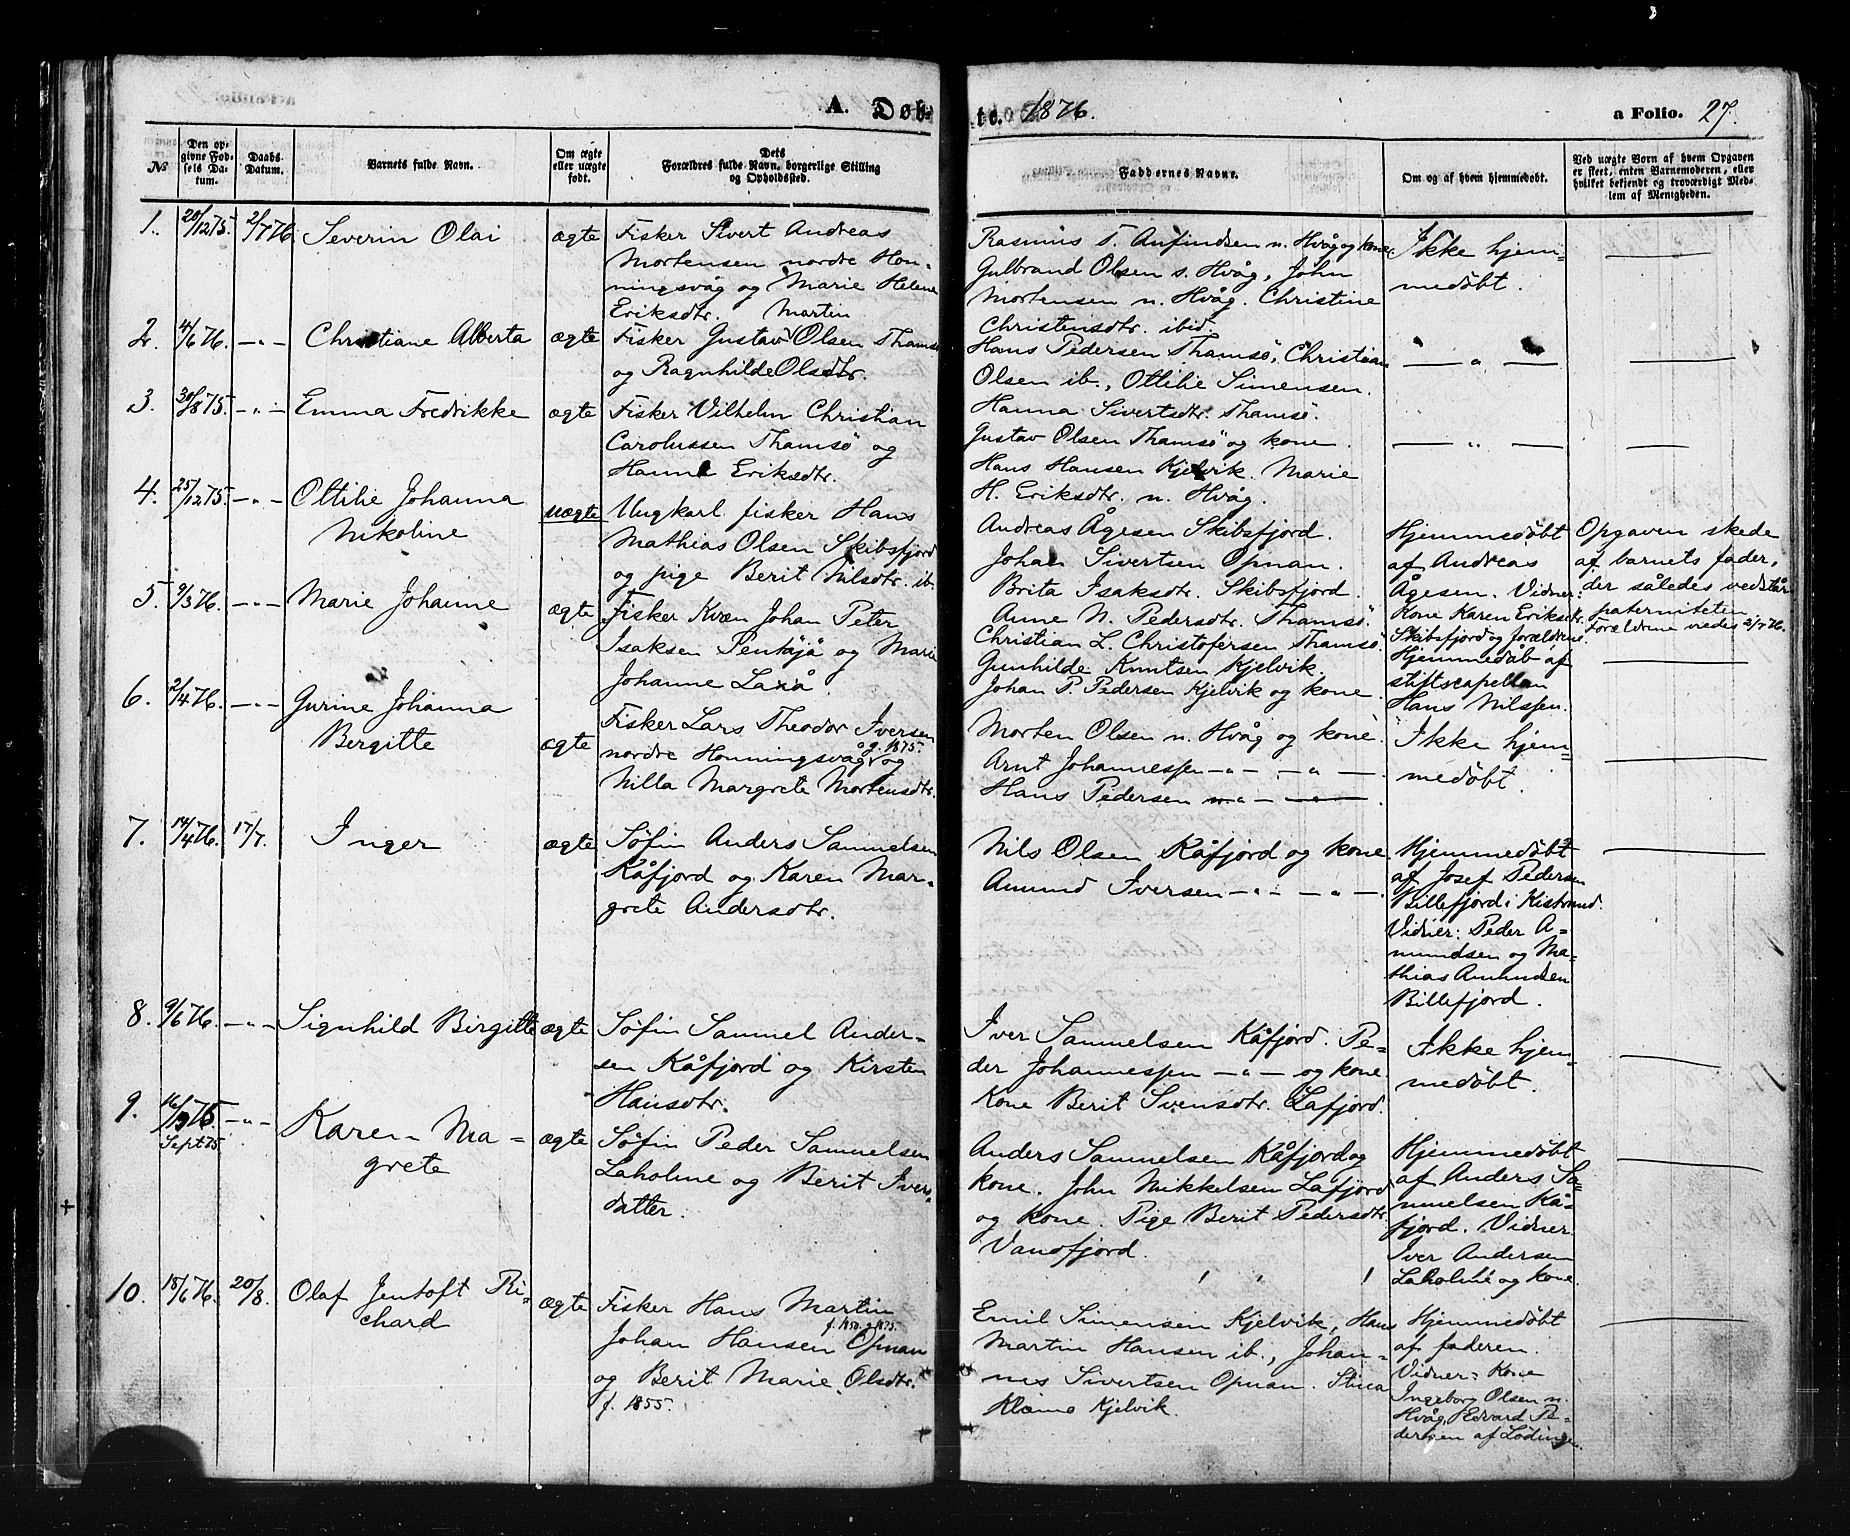 A. Døb-
te. 1876.
a Folio. 27.
№
Den op-
givne Fød-
sels Da-
tum.
Daabs-
Datum.
Barnets fulde Navn.
Om ægte
eller uægte
født.
Dets
Forældres fulde Navn, borgerlige Stilling
og Opholdssted.
Faddernes Navne.
Om og af hvem hjemmedøbt.
Ved uægte Born af hvem Opgaven
er skeet, enten Barnemoderen, eller
hvilket bekjendt og troværdigt Med-
lem af Menigheden.
1. 20/12 75. 2/7 76 Severin Olai ægte
Fisker Sivert Andreas
Mortensen nordre Hon-
ningsvåg og Marie Helene
Eriksdtr.
Rasmus T. Anfindsen n. Hvåg og kone
Gulbrand Olsen s. Hvåg, John
Mortensen n. Hvåg. Christine
Christensdtr. ibid.
Ikke hjem-
medøbt.
2. 4/6 76. -„- Christiane Alberta ægte
Martin
Fisker Gustav Olsen Thamsö
og Ragnhilde Olsdtr.
Hans Pedersen Thamsö, Christian
Olsen ib., Ottilie Simensen.
Hanna Sivertsdtr. Thamsö.
— „ —
3. 30/8 75. -„- Emma Fredrikke ægte
Fisker Vilhelm Christian
Carolussen Thamsö og
Hanne Eriksdtr.
Gustav Olsen Thamsö og kone.
Hans Hansen Kjelvik. Marie
H. Eriksdtr. n. Hvåg.
— „ —
4. 25/12 75. -„- Ottilie Johanna
Nikoline
uægte
Ungkarl fisker Hans
Mathias Olsen Skibsfjord
og pige Berit Nilsdtr. ib.
Andreas Ågesen Skibsfjord.
Johan Sivertsen Opnan.
Brita Isaksdtr. Skibsfjord.
Anne N. Pedersdtr. Thamsö.
Hjemmedøbt
af Andreas
Ågesen. Vidner:
Kone Karen Eriksdtr.
Skibsfjord og forældrene
Opgaven skede
af barnets fader,
der således vedstår
paterniteten.
Forældrene viedes 2/7 76.
5. 9/3 76. -„- Marie Johanne ægte
Fisker Kvæn Johan Peter
Isaksen Pentäjä og Marie
Johanne Laxå.
Christian L. Christofersen Thamsö.
Gunhilde Knutsen Kjelvik.
Johan P. Pedersen Kjelvik og kone.
Hjemmedåb af
stiftscapellan
Hans Nilssen.
6. 2/4 76. -„- Gurine Johanna
Bergitte
ægte
Fisker Lars Theodor Iversen
nordre Honningsvåg og
g. 1875.
Nilla Margrete Mortensdtr.
Morten Olsen n. Hvåg og kone.
Arnt Johannessen -„- -„-
Hans Pedersen -„-
Ikke hjem-
medøbt.
7. 14/4 76. 17/7. Inger ægte
Søfin Anders Samuelsen
Kåfjord og Karen Mar-
grete Andersdtr.
Nils Olsen Kåfjord og kone
Amund Iversen -„- -„-
Hjemmedøbt
af Josef Pedersen
Billefjord i Kistrand.
Vidner: Peder A-
mundsen og Ma-
thias Amundsen
Billefjord.
8. 9/6 76. -„- Signhild Birgitte ægte
Søfin Samuel Ander-
sen Kåfjord og Kirsten
Hansdtr.
Iver Samuelsen Kåfjord. Pe-
der Johannessen -„- og kone
Kone Berit Svensdtr. Lafjord.
Ikke hjem-
medøbt.
9. 16/9 75. -„- Karen Ma-
Sept 75
grete
ægte
Søfin Peder Samuelsen
Laholme og Berit Ivers-
datter.
Anders Samuelsen Kåfjord og
kone. John Mikkelsen Lafjord
og kone. Pige Berit Pedersdtr.
Vandfjord.
Hjemmedøbt
af Anders Sa-
muelsen Kå-
fjord. Vidner
Iver Andersen
Laholme og kone.
10. 18/6 76. 20/8. Olaf Jentoft Ri-
chard
ægte
Fisker Hans Martin
f. 1850. g. 1875.
Johan Hansen Opnan
og Berit Marie Olsdtr.
f. 1855.
Emil Simensen Kjelvik, Hans
Martin Hansen ib., Johan-
nes Sivertsen Opnan. Stina
Klæmo Kjelvik.
Hjemmedøbt
af faderen.
Vidner: Kone
Ingeborg Olsen n.
Hvåg, Edvard Pe-
dersen af Lødingen.